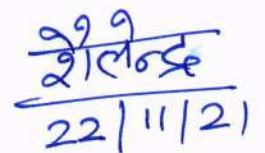 शैलेन्द्र
22/11/21